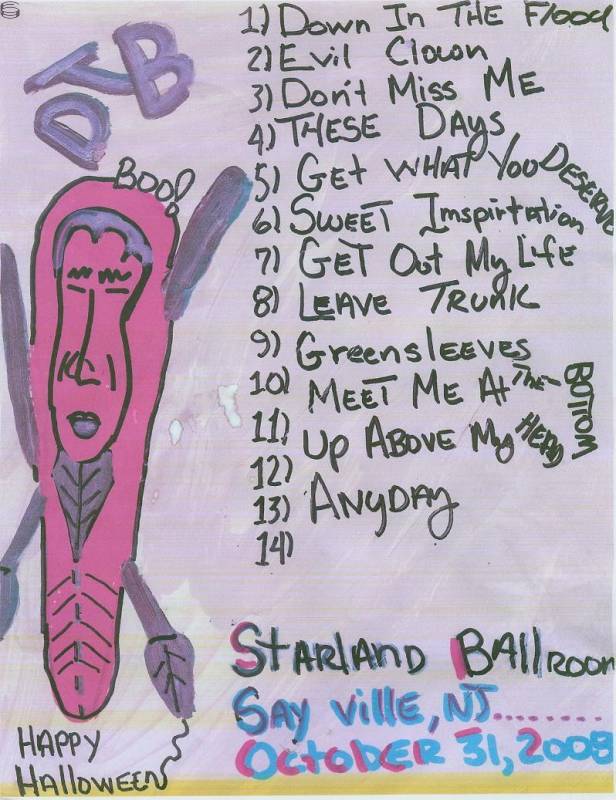 DTB
BOO!
1) Down In THE Flood
2) Evil Clown
3) Don't Miss ME
4) THESE Days
5) Get WHAT You DESERVE
6) SWEET Imspirtation
7) GET Out My Life
8) LEAVE TRUNK
9) Greensleeves
10) MEET ME At THE BOTTOM
11) Up ABOVE My HEAD
12)
13) ANYDAY
14)
STARLAND BAllROOM
SAy ville, NJ........
OCTOBER 31, 2008
HAPPY
HALLOWEEN